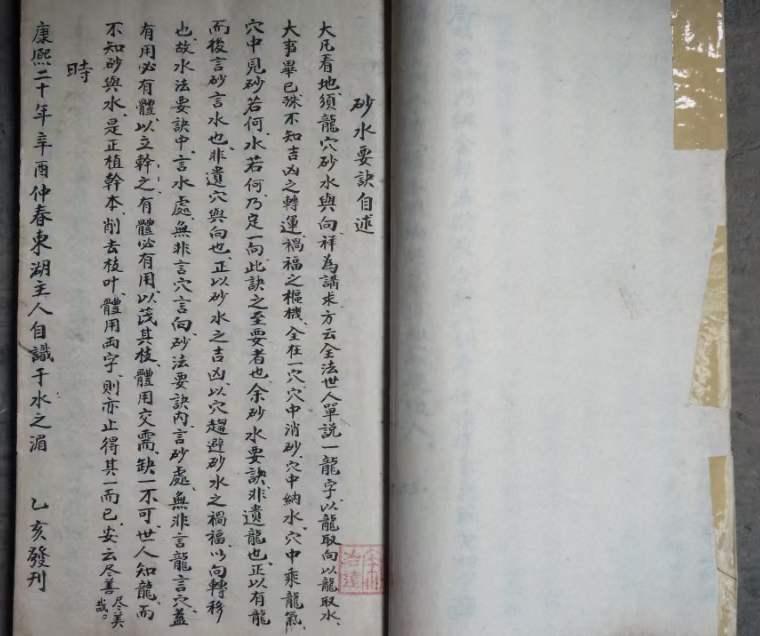 砂水要訣自述
大凡看地須龍穴砂水與向祥為講求方云全法世人單說一龍字以龍取向以龍取水
大事畢已殊不知吉凶之轉運禍福之樞機全在一穴穴中消砂穴中納水穴中乘龍氣
穴中見砂若何水若何乃定一向此訣之至要者也余砂水要訣非遺龍也正以有龍
而後言砂言水也非遺穴與向也正以砂水之吉凶以穴趨避砂水之禍福以向轉移
也故水法要訣中言水處無非言穴言向砂法要訣內言砂處無非言龍言穴蓋
有用必有體以立幹之有體必有用以茂其枝體用交需缺一不可世人知龍而
不知砂與水是正植幹本削去枝叶體用両字則亦止得其一而已安云尽善尽美哉
時
康熙二十年辛酉仲春東湖主人自識于水之湄 乙亥發刊